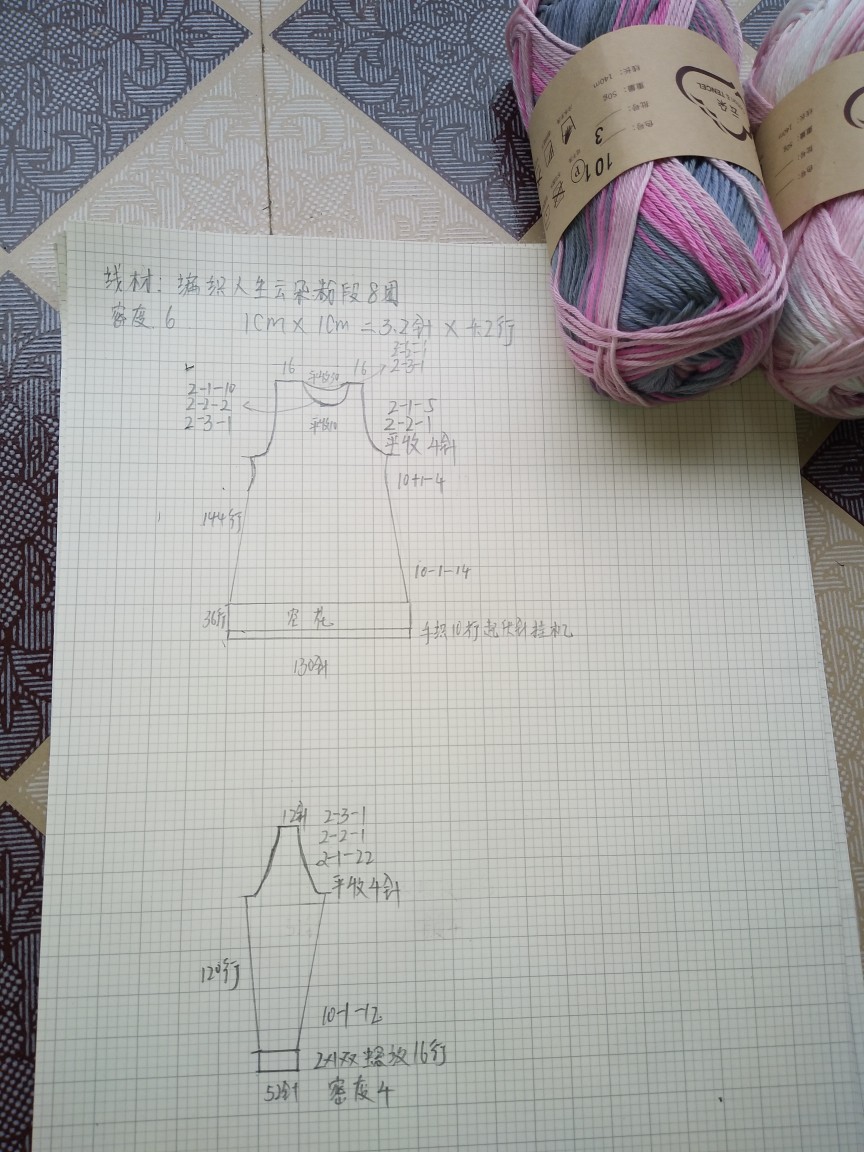 线长：140m
重量：50g
批号：
色号：3
101
云朵
TENCEL
线长：140m
重量：50g
色号：
线材：编织人生云朵粉段8团
密度6 1cm×1cm=3.2针×4.2行
16 16
2-3-1
2-1-10
2-2-2
2-3-1
平收10
2-1-5
2-2-1
平收4针
10+1-4
144行
10-1-14
36行 空花
手织10行起伏针挂机
130针
12针 2-3-1
2-2-1
2-1-22
平收4针
120行
10-1-12
16行
52针 密度4